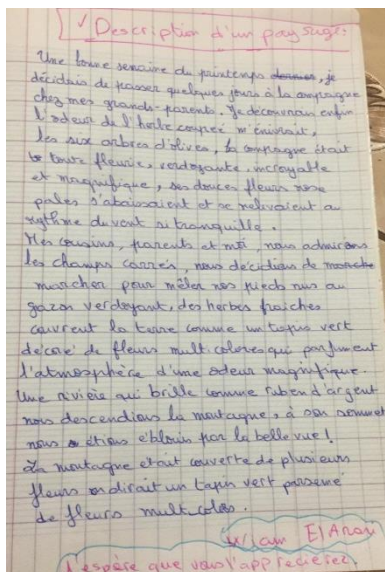 Description d'un paysage:
Une bonne semaine du printemps, je
décidais de passer quelques jours à la campagne
chez mes grands-parents. Je découvrais enfin
l'odeur de l'herbe coupée m'énivrait,
les six arbres d'olives, la compagne était
toute fleurie, verdoyante, incroyable
et magnifique, ses douces fleurs rose
pales s'abaissaient et se relivaient au
rythme du vent si tranquille.
Mes cousins, parents et moi, nous admirions
les champs carrés, nous décidions de
marcher pour mêler nos pieds nus au
gazon verdoyant, des herbes fraiches
couvrent la terre comme un tapis vert
décoré de fleurs multicolores qui parfument
l'atmosphère d'une odeur magnifique.
Une rivière qui brille comme ruben d'argent
nous descendions la montagne, à son sommet
nous étions éblouis par la belle vue!
La montagne était couverte de plusieurs
fleurs on dirait un tapis vert parsemé
de fleurs multicolos.
J'espère que vous l'appréciérez.